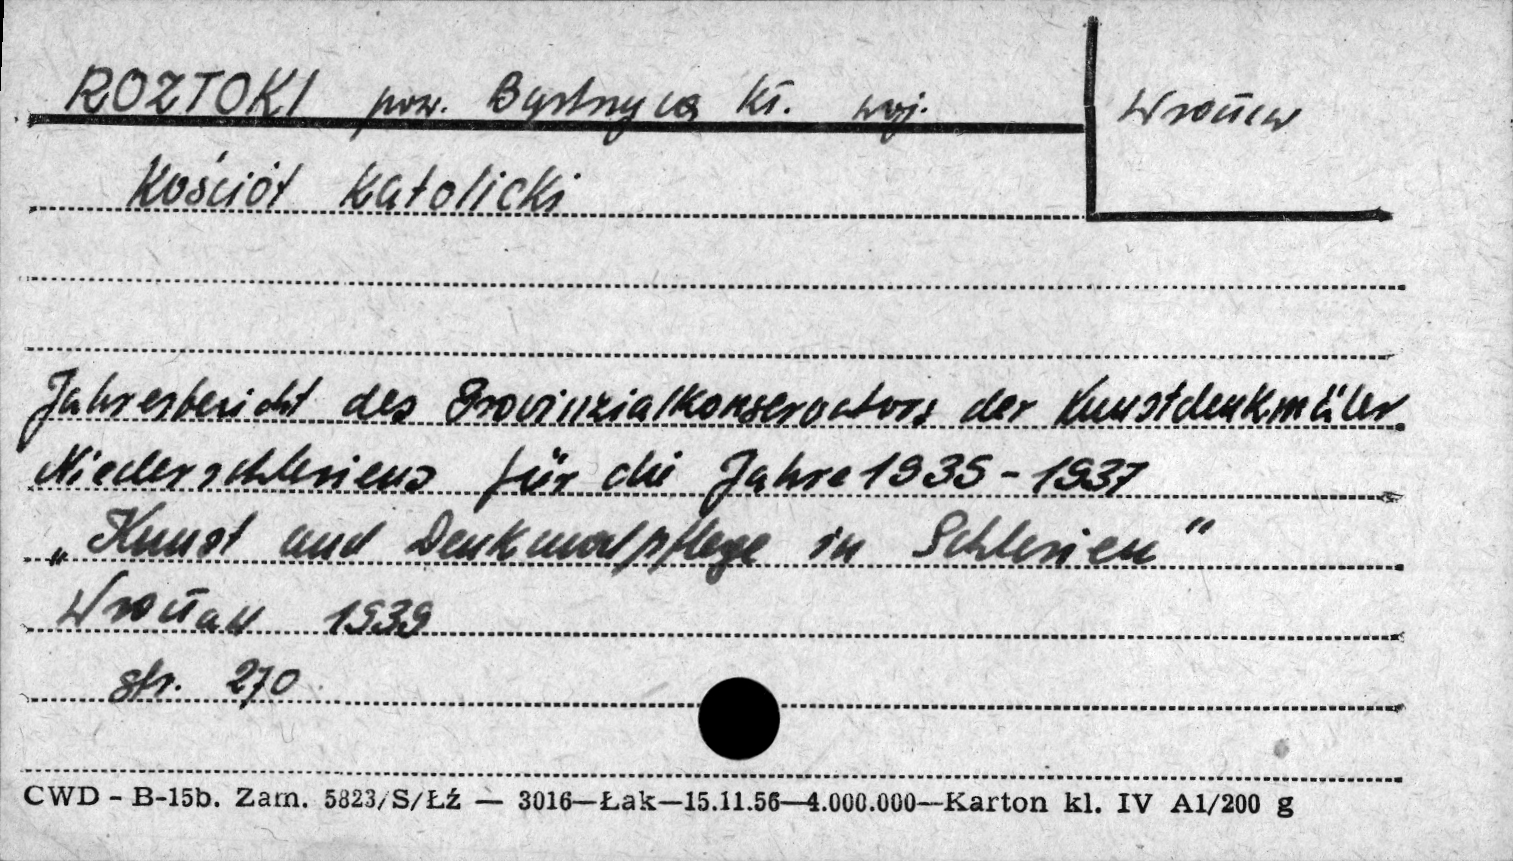 ROZTOKI pow. Bystrzyca Kł. woj. Wrocław
Kościół Katolicki
Jahresbericht des Provinzialkonservators der Kunstdenkmäler
Niederschlesiens für die Jahre 1935-1937
„Kunst und Denkmalpflege in Schlesien"
Wrocław 1939
str. 270
CWD - B-15b. Zam. 5823/S/Łź — 3016—Łak—15.11.56—4.000.000—Karton kl. IV A1/200 g